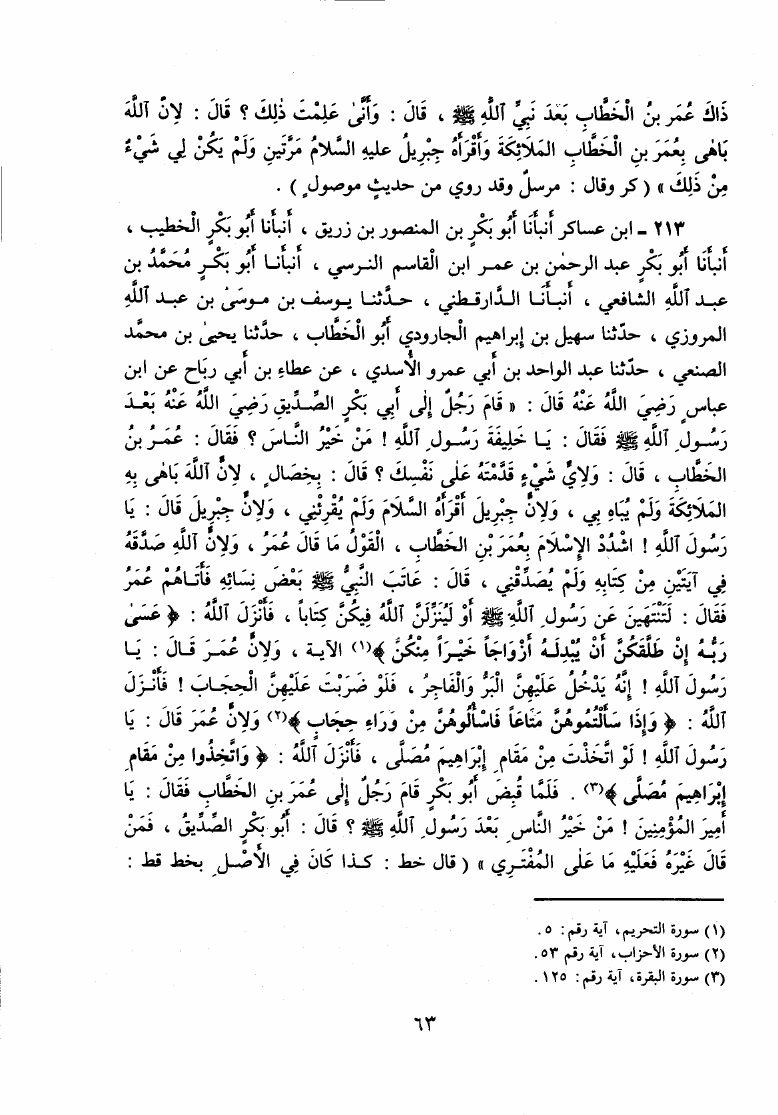 ذَاكَ عُمَر بنُ الْخَطَّابِ بَعْدَ نَبِيِّ اللَّهِ ﷺ ، قَالَ : وَأَنَّىٰ عَلِمْتَ ذٰلِكَ ؟ قَالَ : لِانَّ اللَّهَ
بَاهٰى بِعُمَرَ بنِ الْخَطَّابِ المَلَائِكَةَ وَأَقْرَأَهُ جِبْرِيلُ عليهِ السَّلَامُ مَرَّتَينِ وَلَمْ يَكُنْ لِي شَيْءٌ
مِنْ ذٰلِكَ » ( كر وقال : مرسلٌ وقد روي من حديثٍ موصولٍ ) .
٢١٣ - ابن عساكر أَنبأَنَا أَبُو بَكْرِ بن المنصور بن زريق ، أَنبأَنا أَبُو بَكْرٍ الْخطيب ،
أَنبأَنَا أَبُو بَكْرٍ عبد الرحمٰن بن عمـر ابن الْقاسم النـرسي ، أَنبأَنـا أَبُو بَكْـرٍ مُحَمَّدُ بن
عبـد اللَّهِ الشافعي ، أَنبـأَنَـا الـدَّارقـطني ، حـدَّثنـا يـوسف بن مـوسَىٰ بن عبـد اللَّهِ
المروزي ، حدّثنا سهيل بن إِبراهيم الْجارودي أَبُو الْخطَّاب ، حدَّثنا يحيىٰ بن محمَّد
الصنعي ، حدَّثنا عبد الواحد بن أَبي عمرو الأَسدي ، عن عطاءِ بن أَبي ربَاح عن ابن
عباسٍ رَضِيَ اللَّهُ عَنْهُ قَالَ : « قَامَ رَجُلٌ إِلٰى أَبِي بَكْرٍ الصِّدِّيقِ رَضِيَ اللَّهُ عَنْهُ بَعْـدَ
رَسُـولِ اللَّهِ ﷺ فَقَالَ : يَـا خَلِيفَةَ رَسُـولِ اللَّهِ ! مَنْ خَيْرُ النَّـاسِ ؟ فَقَالَ : عُمَـرُ بنُ
الخَطَّابِ ، قَالَ : وَلِايِّ شَيْءٍ قَدَّمْتَهُ عَلٰى نَفْسِكَ ؟ قَالَ : بِخِصَالٍ ، لِانَّ اللَّهَ بَاهٰى بِهِ
المَلَائِكَةَ وَلَمْ يُبَاهِ بِي ، وَلِانَّ جِبْرِيلَ أَقْرَأَهُ السَّلَامَ وَلَمْ يُقْرِئْنِي ، وَلِانَّ جِبْرِيلَ قَالَ : يَا
رَسُولَ اللَّهِ ! اشْدُدِ الإِسْلَامَ بِعُمَرَ بْنِ الخَطَّابِ ، الْقَوْلُ مَا قَالَ عُمَرُ ، وَلِانَّ اللَّهَ صَدَّقَهُ
فِي آيَتَيْنِ مِنْ كِتَابِهِ وَلَمْ يُصَدِّقْنِي ، قَالَ : عَاتَبَ النَّبِيُّ ﷺ بَعْضَ نِسَائِهِ فَأَتَـاهُمْ عُمَرُ
فَقَالَ : لَتَنْتَهِينَ عَن رَسُولِ اللَّهِ ﷺ أَوْ لَيُنْزِلَنَّ اللَّهُ فِيكُنَّ كِتَاباً ، فَأَنْزَلَ اللَّهُ : ﴿ عَسَىٰ
رَبُّـهُ إِنْ طَلَّقَكُنَّ أَنْ يُبْدِلَـهُ أَزْوَاجَاً خَيْـرَاً مِنْكُنَّ ﴾(١) الآيـة ، وَلِانَّ عُمَـرَ قَـالَ : يَـا
رَسُولَ اللَّهِ ! إِنَّهُ يَدْخُلُ عَلَيْهِنَّ الْبَرُّ وَالْفَاجِرُ ، فَلَوْ ضَرَبْتَ عَلَيْهِنَّ الْحِجَـابَ ! فَأَنْـزَلَ
اللَّهُ : ﴿ وَإِذَا سَأَلْتُمُوهُنَّ مَتَاعَاً فَاسْأَلُوهُنَّ مِنْ وَرَاءِ حِجَابٍ ﴾(٢) وَلِانَّ عُمَرَ قَالَ : يَا
رَسُولَ اللَّهِ ! لَوْ اتَّخَذْتَ مِنْ مَقَامِ إِبْرَاهِيمَ مُصَلَّى ، فَأَنْزَلَ اللَّهُ : ﴿ وَاتَّخِذُوا مِنْ مَقَامِ
إِبْرَاهِيمَ مُصَلَّى ﴾(٣) . فَلَمَّا قُبِضَ أَبُو بَكْرٍ قَامَ رَجُلٌ إِلٰى عُمَرَ بنِ الخَطَّابِ فَقَالَ : يَا
أَمِيرَ المُؤْمِنِينَ ! مَنْ خَيْرُ النَّاسِ بَعْدَ رَسُولِ اللَّهِ ﷺ ؟ قَالَ : أَبُو بَكْرٍ الصِّدِّيقُ ، فَمَنْ
قَالَ غَيْرَهُ فَعَلَيْهِ مَا عَلٰى المُفْتَـرِي » ( قال خط : كـذا كَانَ فِي الأَصْـلِ بخط قط :
(١) سورة التحريم، آية رقم: ٥.
(٢) سورة الأحزاب، آية رقم ٥٣.
(٣) سورة البقرة، آية رقم: ١٢٥.
٦٣